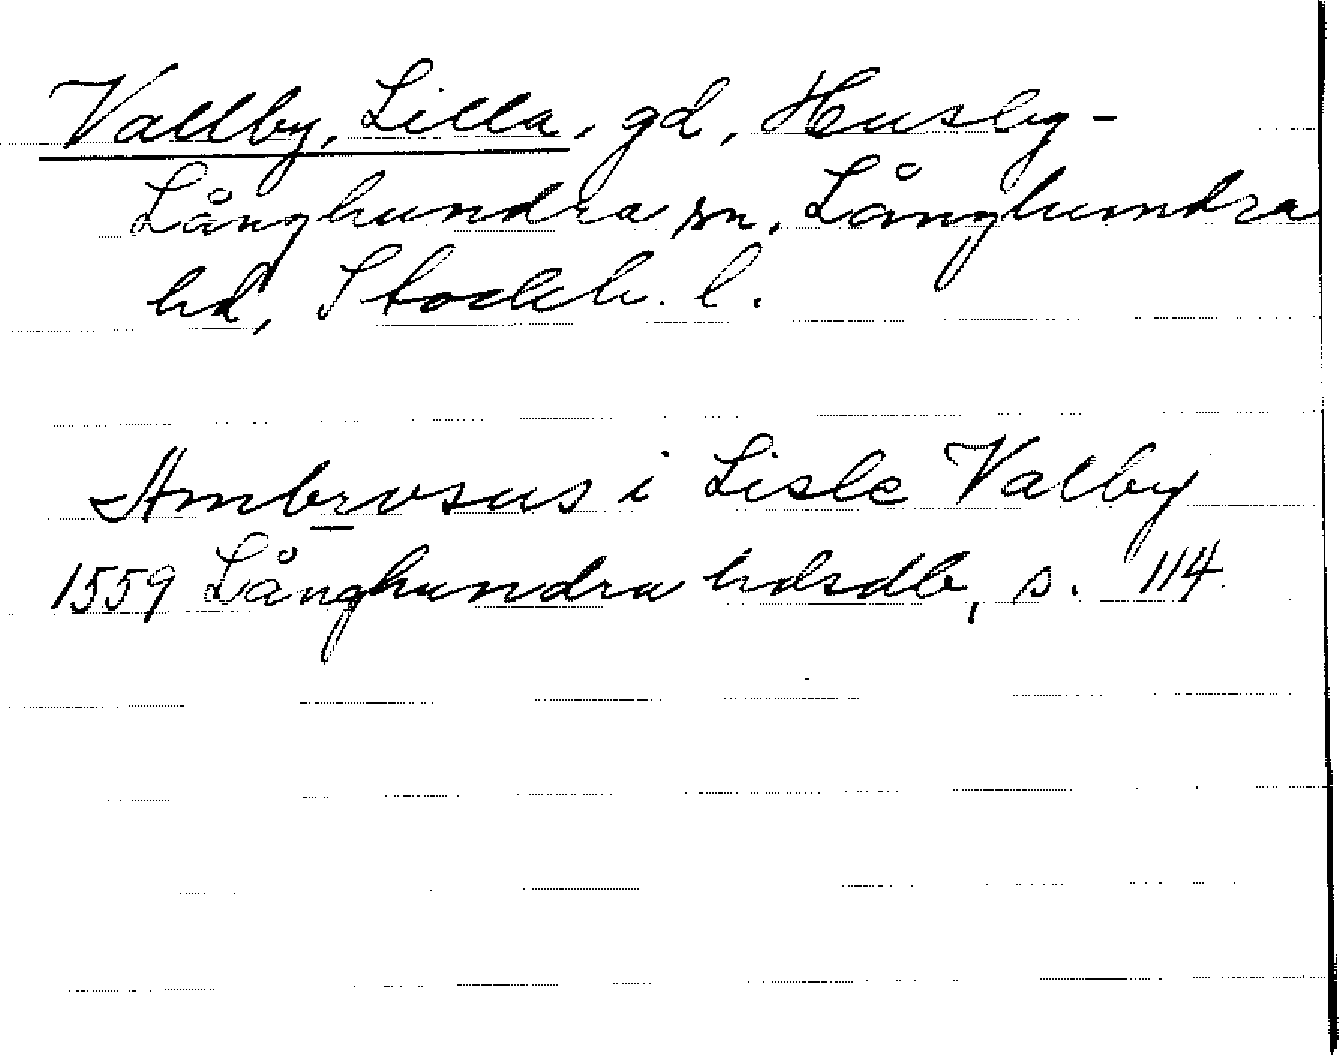 Vallby, Lilla, gd, Husby-
Långhundra sn, Långhundra
hd, Stockh. l.
Ambrosus i Lisle Valby
1559 Långhundra hdsdb, s. 114.